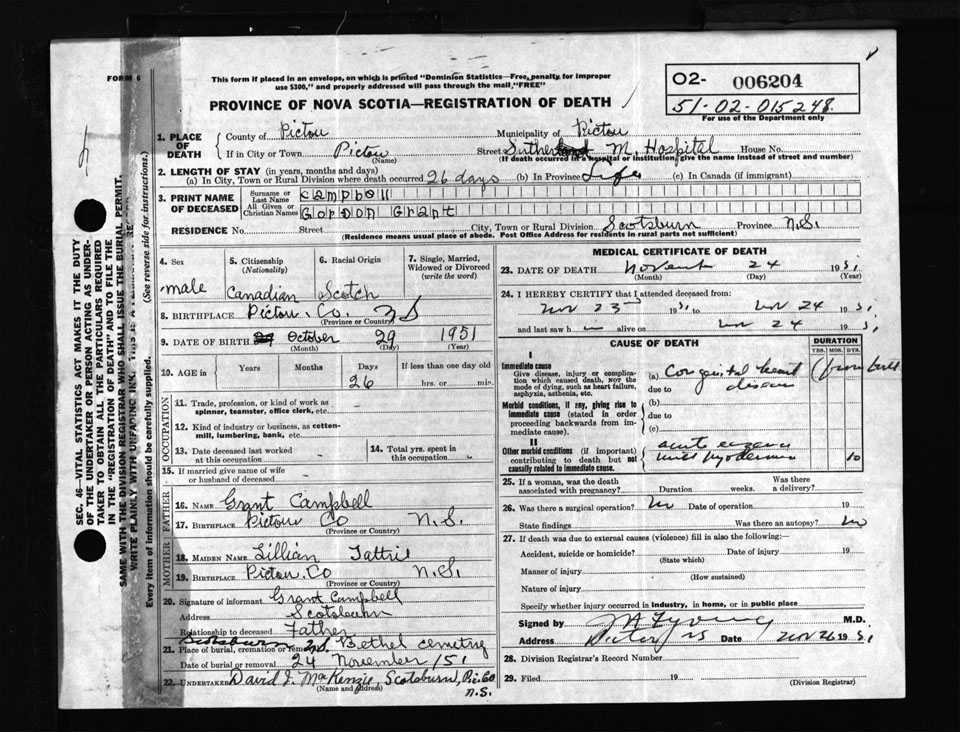 FORM 6
This form if placed in an envelope, on which is printed "Dominion Statistics—Free, penalty for improper
use $300," and properly addressed will pass through the mail, "FREE"
PROVINCE OF NOVA SCOTIA—REGISTRATION OF DEATH
O2- 006204
51-02-015248.
For use of the Department only
1. PLACE OF DEATH
County of Pictou
Municipality of Pictou
If in City or Town Pictou
(Name)
Street Sutherland M. Hospital House No.
(If death occurred in a hospital or institution, give the name instead of street and number)
2. LENGTH OF STAY (in years, months and days)
(a) In City, Town or Rural Division where death occurred 26 days (b) In Province Life (c) In Canada (if immigrant)
3. PRINT NAME OF DECEASED
Surname or Last Name Campbell
All Given or Christian Names Gordon Grant
RESIDENCE No. Street City, Town or Rural Division Scotsburn Province N.S.
(Residence means usual place of abode. Post Office Address for residents in rural parts not sufficient)
4. Sex
male
5. Citizenship
(Nationality)
Canadian
6. Racial Origin
Scotch
7. Single, Married,
Widowed or Divorced
(write the word)
8. BIRTHPLACE Pictou Co. NS
(Province or Country)
9. DATE OF BIRTH October 29 1951
(Month) (Day) (Year)
10. AGE in
Years Months Days If less than one day old
26 hrs. or min.
OCCUPATION
11. Trade, profession, or kind of work as
spinner, teamster, office clerk, etc.
12. Kind of industry or business, as cotton-
mill, lumbering, bank, etc.
13. Date deceased last worked
at this occupation
14. Total yrs. spent in
this occupation
15. If married give name of wife
or husband of deceased
FATHER
16. Name Grant Campbell
17. Birthplace Pictou Co N.S.
(Province or Country)
MOTHER
18. Maiden Name Lillian Tattrie
19. Birthplace Pictou. Co N.S.
(Province or Country)
20. Signature of informant Grant Campbell
Address Scotsburn
Relationship to deceased Father
21. Place of burial, cremation or removal Bethel cemetry
Date of burial or removal 24 November /51
22. Undertaker David J. MacKenzie, Scotsburn, Pic. Co
(Name and Address)
N.S.
MEDICAL CERTIFICATE OF DEATH
23. DATE OF DEATH Novemb 24 1951
(Month) (Day) (Year)
24. I HEREBY CERTIFY that I attended deceased from:
Nov 23 1951 to Nov 24 1951
and last saw h alive on Nov 24 1951
CAUSE OF DEATH
DURATION
YRS. MOS. DYS.
I
Immediate cause
Give disease, injury or complica-
tion which caused death, NOT the
mode of dying, such as heart failure,
asphyxia, asthenia, etc.
(a) Congenital heart (from birth
due to disease
Morbid conditions, if any, giving rise to
immediate cause (stated in order
proceeding backwards from im-
mediate cause).
(b)
due to
(c)
II
Other morbid conditions (if important)
contributing to death but not
causally related to immediate cause.
acute eczema
with Pyoderma 10
25. If a woman, was the death
associated with pregnancy? Duration weeks. Was there
a delivery?
26. Was there a surgical operation? No Date of operation 19
State findings Was there an autopsy? No
27. If death was due to external causes (violence) fill in also the following:
Accident, suicide or homicide? Date of injury 19
(State which)
Manner of injury
(How sustained)
Nature of injury
Specify whether injury occurred in industry, in home, or in public place
Signed by M.D.
Address Pictou NS Date Nov 26 1951
28. Division Registrar's Record Number
29. Filed 19
(Division Registrar)
SEC. 46—VITAL STATISTICS ACT MAKES IT THE DUTY
OF THE UNDERTAKER OR PERSON ACTING AS UNDER-
TAKER TO OBTAIN ALL THE PARTICULARS REQUIRED
IN THE "REGISTRATION OF DEATH" AND TO FILE THE
SAME WITH THE DIVISION REGISTRAR WHO SHALL ISSUE THE BURIAL PERMIT.
WRITE PLAINLY WITH UNFADING INK. THIS IS A
Every item of information should be carefully supplied. (See reverse side for instructions.)